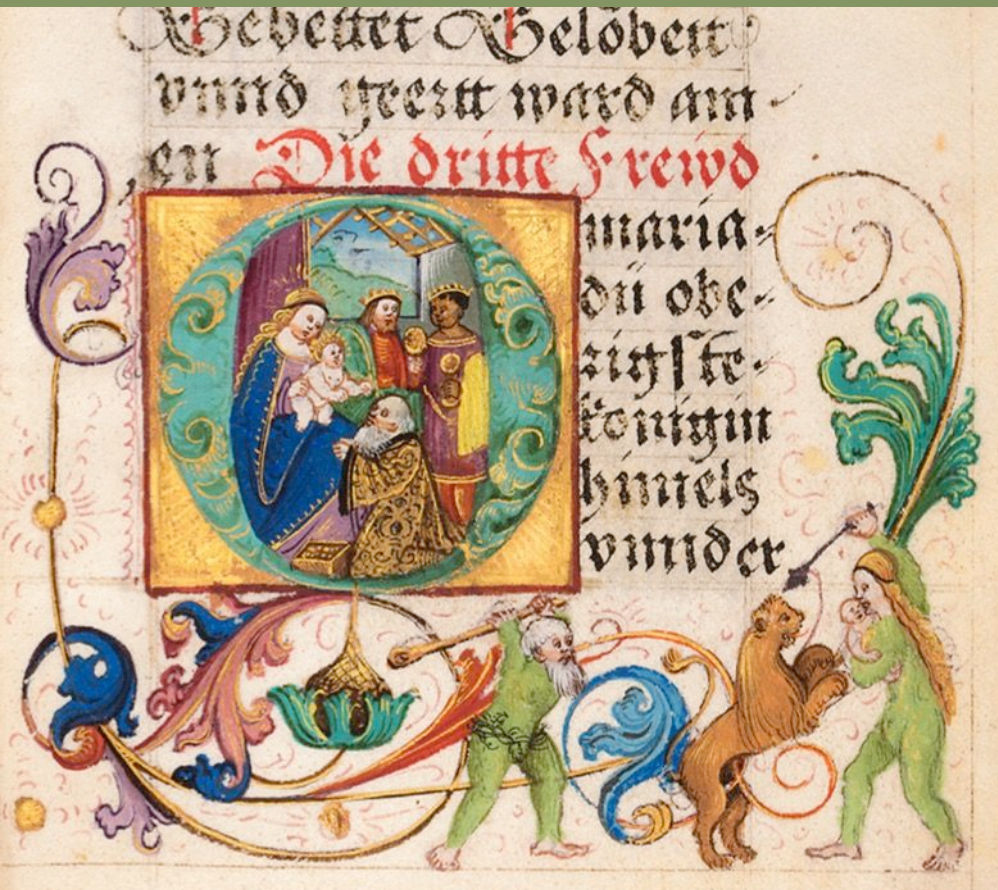 Gebettet Gelobett
vnnd geertt ward am-
en Die dritte Frewd
maria-
du obe-
rigste-
konigin
himels
vnnder